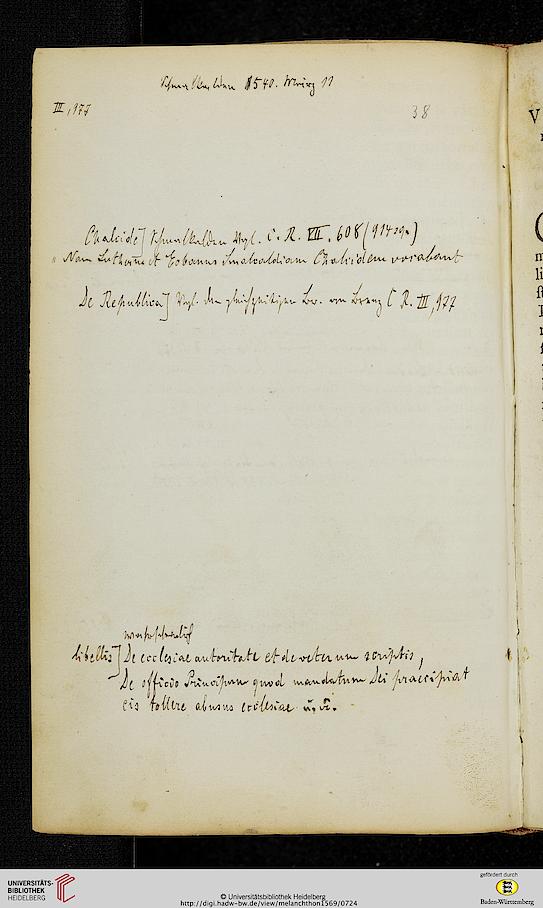 Schmalkalden 1540. März 11
III, 977
38
Chalcide] Schmalkalden Vgl. C. R. VII, 608 (914 sq.)
„Nam Lutherus et Eobanus Smalcaldiam Chalcidem vocabant
De Republica] Vgl. den gleichzeitigen Br. an Brenz C R. III, 977
wahrscheinlich
libellis] De ecclesiae autoritate et de veterum scriptis,
De officio Principum quod mandatum Dei praecipiat
eis tollere abusus ecclesiae u. a.
V
m
li
UNIVERSITÄTS-
BIBLIOTHEK
HEIDELBERG
© Universitätsbibliothek Heidelberg
http://digi.hadw-bw.de/view/melanchthon1569/0724
gefördert durch
Baden-Württemberg